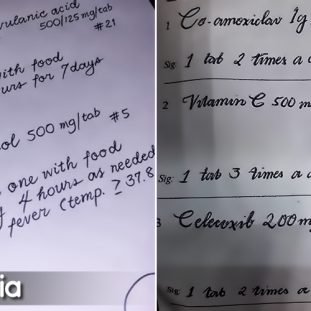 vulanic acid
500/125 mg/tab
#21
with food
urs for 7 days
ol 500 mg/tab #5
one with food
4 hours as needed
fever (temp. ≥ 37.8
ia
1 Co-amoxiclav 1g
Sig: 1 tab 2 times a
2 Vitamin C 500 m
Sig: 1 tab 3 times a
3 Celecoxib 200m
Sig: 1 tab 2 times a